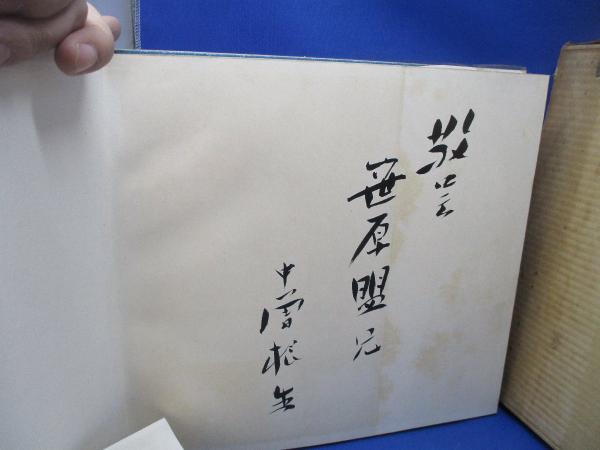 敬呈
笹原盟兄
中曽根生